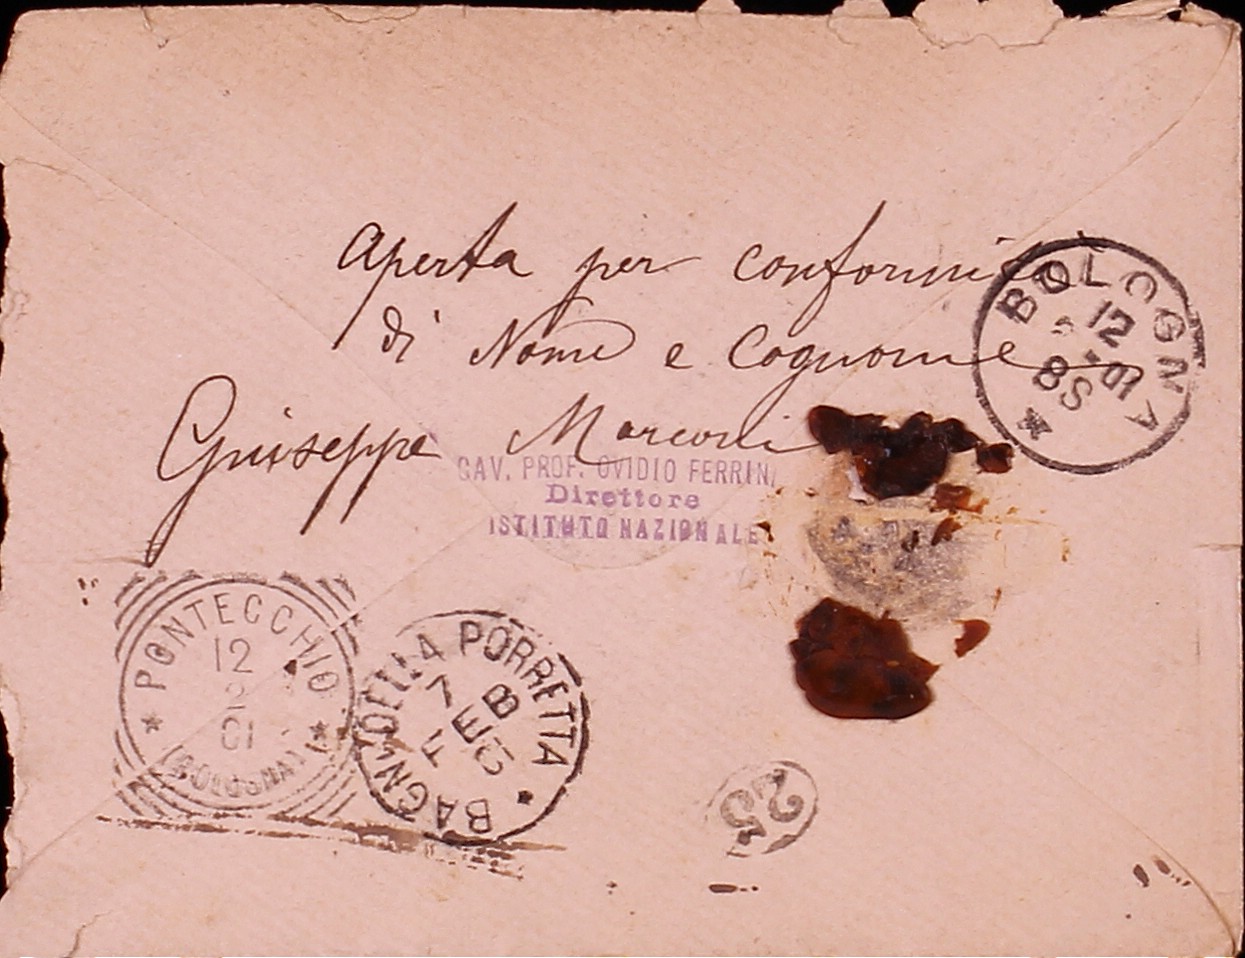 Aperta per conformità
di Nome e Cognome
Giuseppe Marconi
CAV. PROF. OVIDIO FERRINI
Direttore
ISTITUTO NAZIONALE
BOLOGNA
12
01
8S
PONTECCHIO
12
2
01
(BOLOGNA)
BAGNI DELLA PORRETTA
7
FEB
25